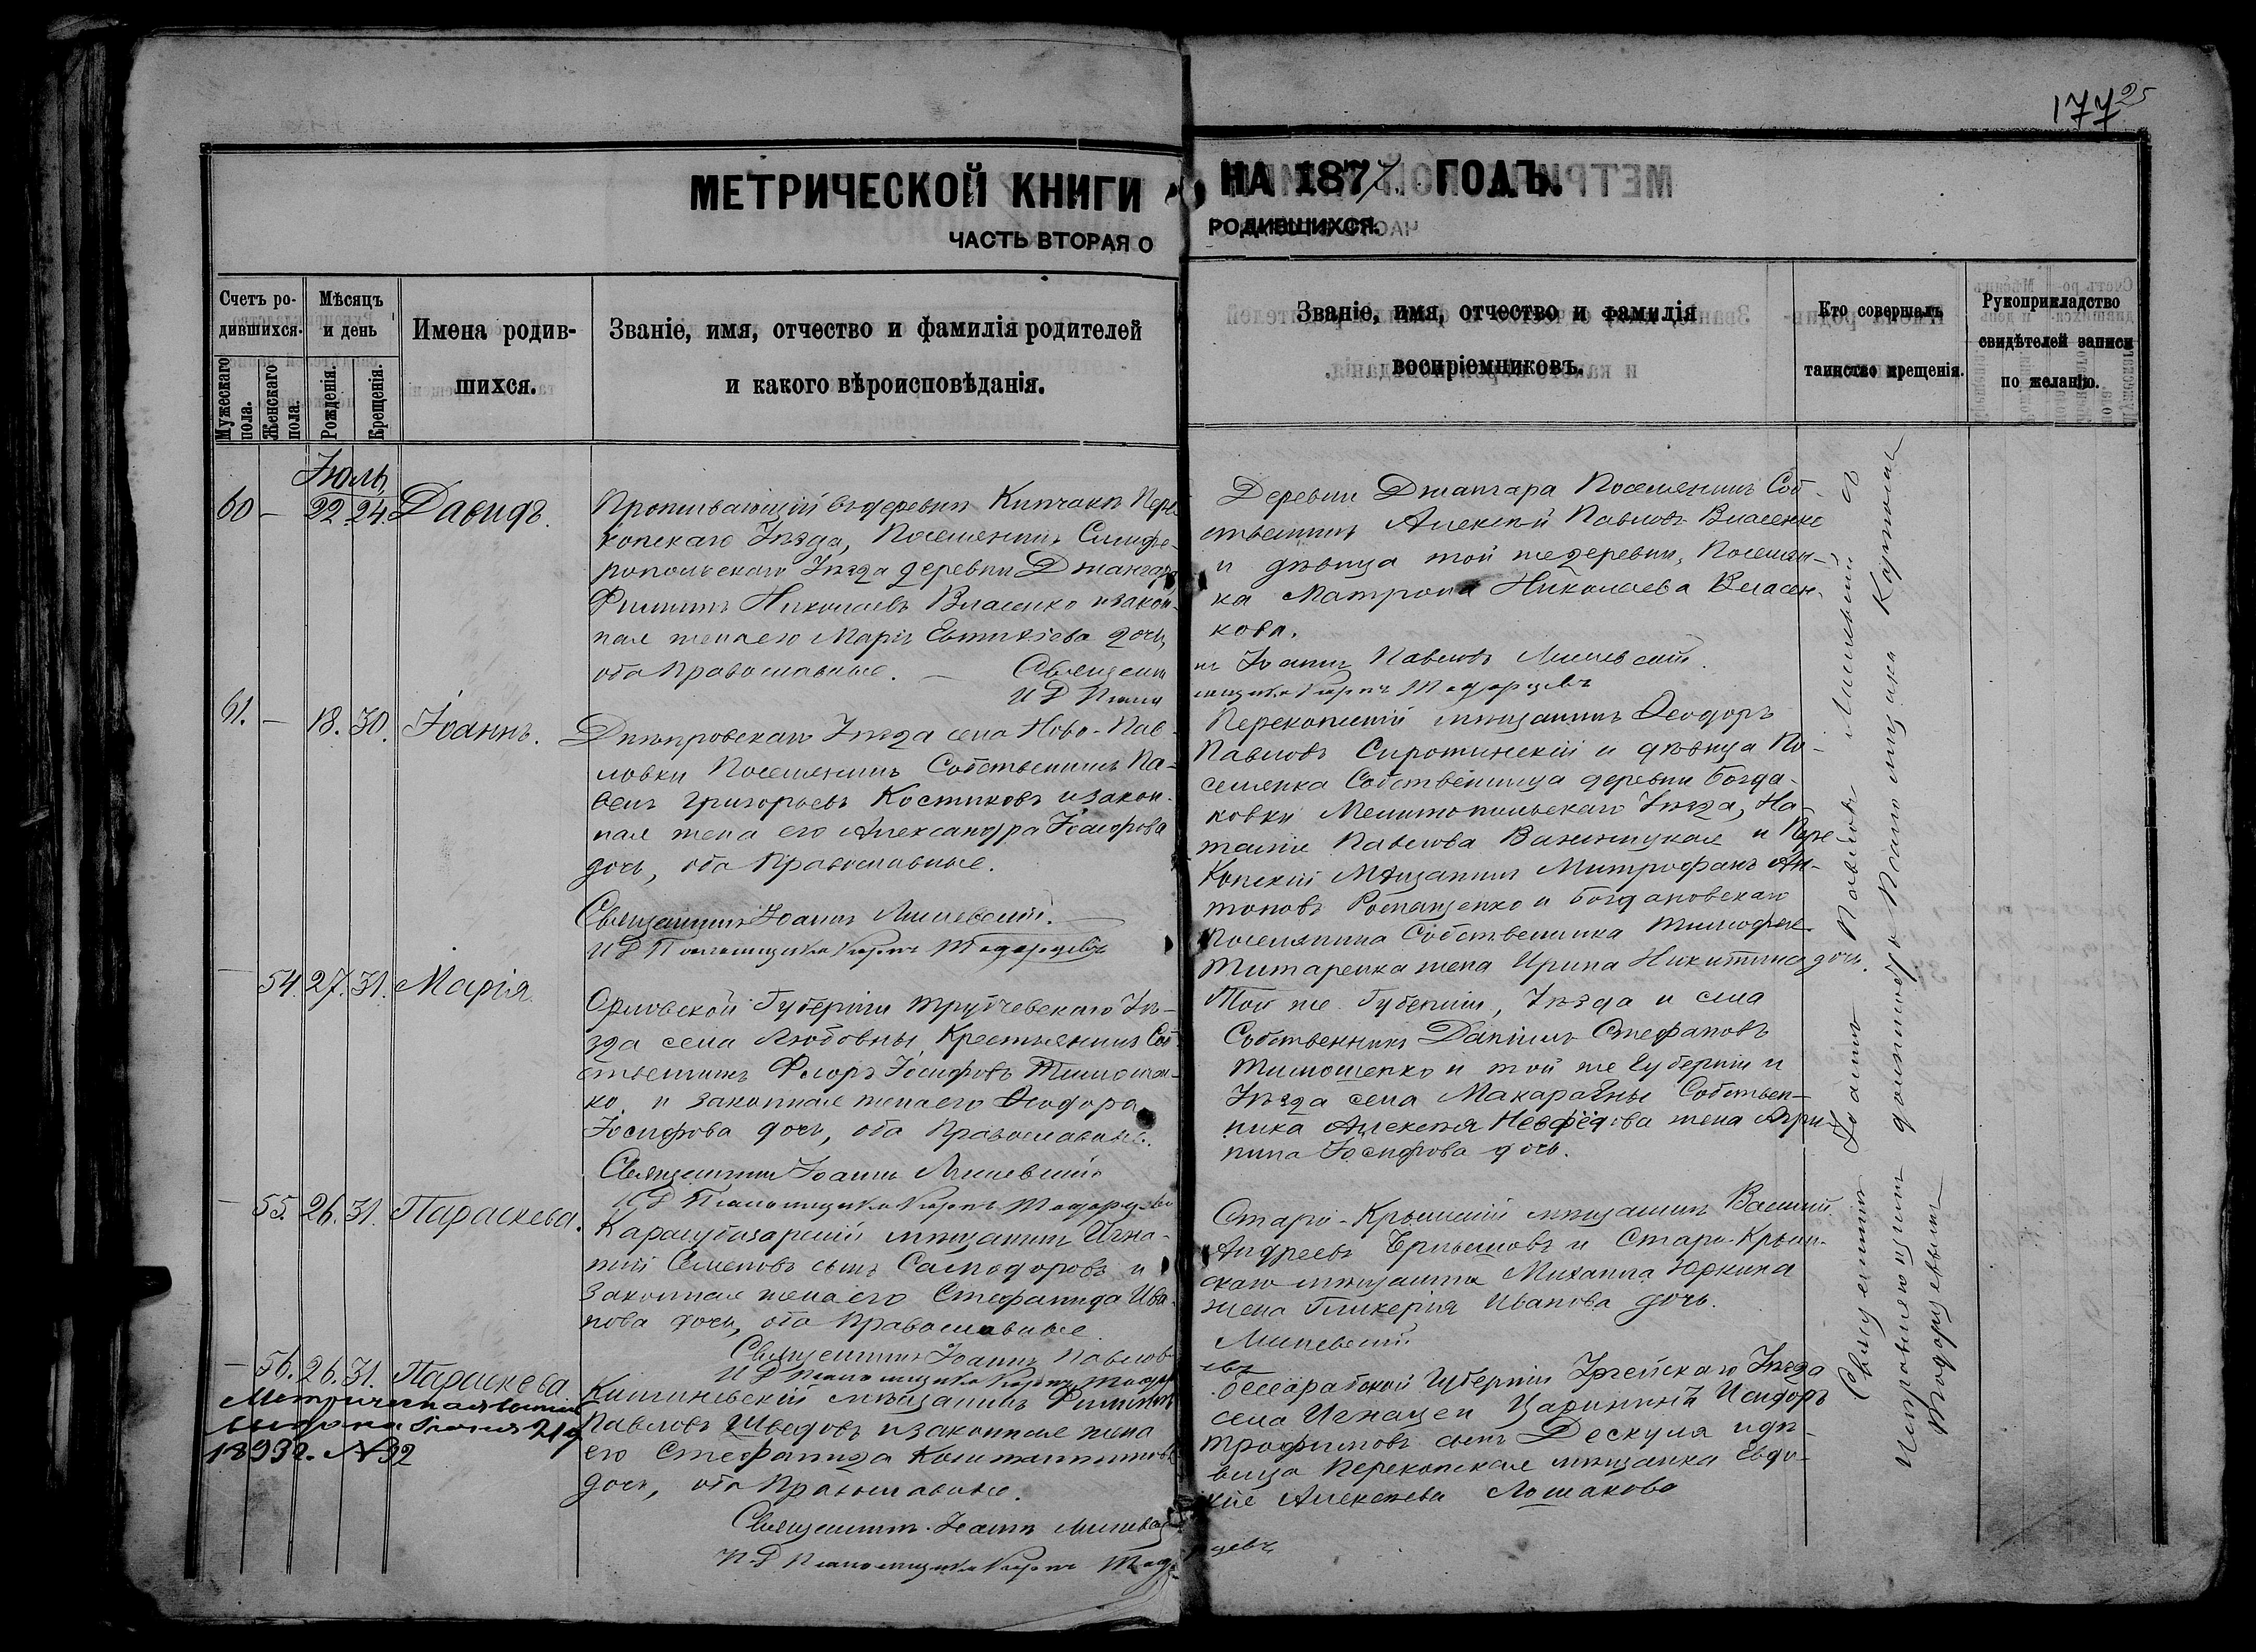 177 25
МЕТРИЧЕСКОЙ КНИГИ НА 1877 ГОДЪ.
ЧАСТЬ ВТОРАЯ О РОДИВШИХСЯ.
Счетъ ро-
дившихся.
Мужескаго пола.
Женскаго пола.
Мѣсяцъ
и день
Рожденія.
Крещенія.
Имена родив-
шихся.
Званіе, имя, отчество и фамилія родителей
и какого вѣроисповѣданія.
Званіе, имя, отчество и фамилія
воспріемниковъ.
Кто совершалъ
таинство крещенія.
Рукоприкладство
свидѣтелей записи
по желанію.
Іюль
60 — 22 24. Давидъ.
Проживающій въ деревнѣ Кипчакъ Пере
копскаго Уѣзда, Поселянинъ Симфе-
ропольскаго Уѣзда деревни Джангара
Филиппъ Николаевъ Власенко и закон-
ная жена его Марія Евтихіева дочь,
оба Православные.
Деревни Джангара Поселянинъ Соб-
ственникъ Алексѣй Павловъ Власенко
и дѣвица той же деревни, Поселян-
ка Матрона Николаева Власен-
кова.
Священникъ Іоаннъ Павловъ
И Д Псаломщика Карпъ
61. — 18. 30. Іоаннъ.
Днѣпровскаго Уѣзда села Ново-Пав-
ловки Поселянинъ Собственникъ Па-
велъ Григорьевъ Костиковъ и закон-
ная жена его Александра Іосифова
дочь, оба Православные.
Священникъ Іоаннъ
И Д Псаломщика Карпъ
Перекопскій мѣщанинъ Ѳеодоръ
Павловъ Сиротинскій и дѣвица По-
селянка Собственница деревни Богда-
новки Мелитопольскаго Уѣзда, На-
талія Павлова и Пере-
копскій Мѣщанинъ Митрофанъ Ан-
тоновъ и Богдановскаго
Поселянина Собственника Тимофея
Титаренка жена Ирина Никитина дочь.
— 54. 27. 31. Марія.
Орловской Губерніи Трубчевскаго Уѣ-
зда села Любовны Крестьянинъ Соб
ственникъ Флоръ Іосифовъ Тимошен-
ко и законная жена его Ѳеодора
Іосифова дочь, оба Православные.
Священникъ Іоаннъ
И Д Псаломщика Карпъ
Той же Губерніи, Уѣзда и села
Собственникъ Даніилъ Стефановъ
Тимошенко и той же Губерніи и
Уѣзда села Собствен-
ника Алексѣя жена
Іосифова дочь.
— 55. 26. 31. Параскева.
Карасубазарскій мѣщанинъ Игна-
тій Семеновъ сынъ Самодуровъ и
Законная жена его Стефанида Ива-
нова дочь, оба Православные.
Священникъ Іоаннъ Павловъ
И Д Псаломщика Карпъ
Старо-Крымскій мѣщанинъ Василій
Андреевъ и Старо-Крым-
скаго мѣщанина Михаила Юркина
жена Гликерія Иванова дочь.
— 56. 26. 31. Параскева.
Метрическая
21 д
1893 г. № 32
Кишиневскій мѣщанинъ Филиппъ
Павловъ Шведовъ и законная жена
его Стефанида Константинова
дочь, оба Православные.
Священникъ Іоаннъ
И Д Псаломщика Карпъ
Бессарабской Губерніи Уѣзда
села Царанинъ Исидоръ
Трофимовъ сынъ Дескуля и дѣ-
вица Перекопская мѣщанка Евдо-
кія Алексѣева Лошакова
Священникъ Іоаннъ Павловъ
Исправляющимъ должность Псаломщика Карпомъ